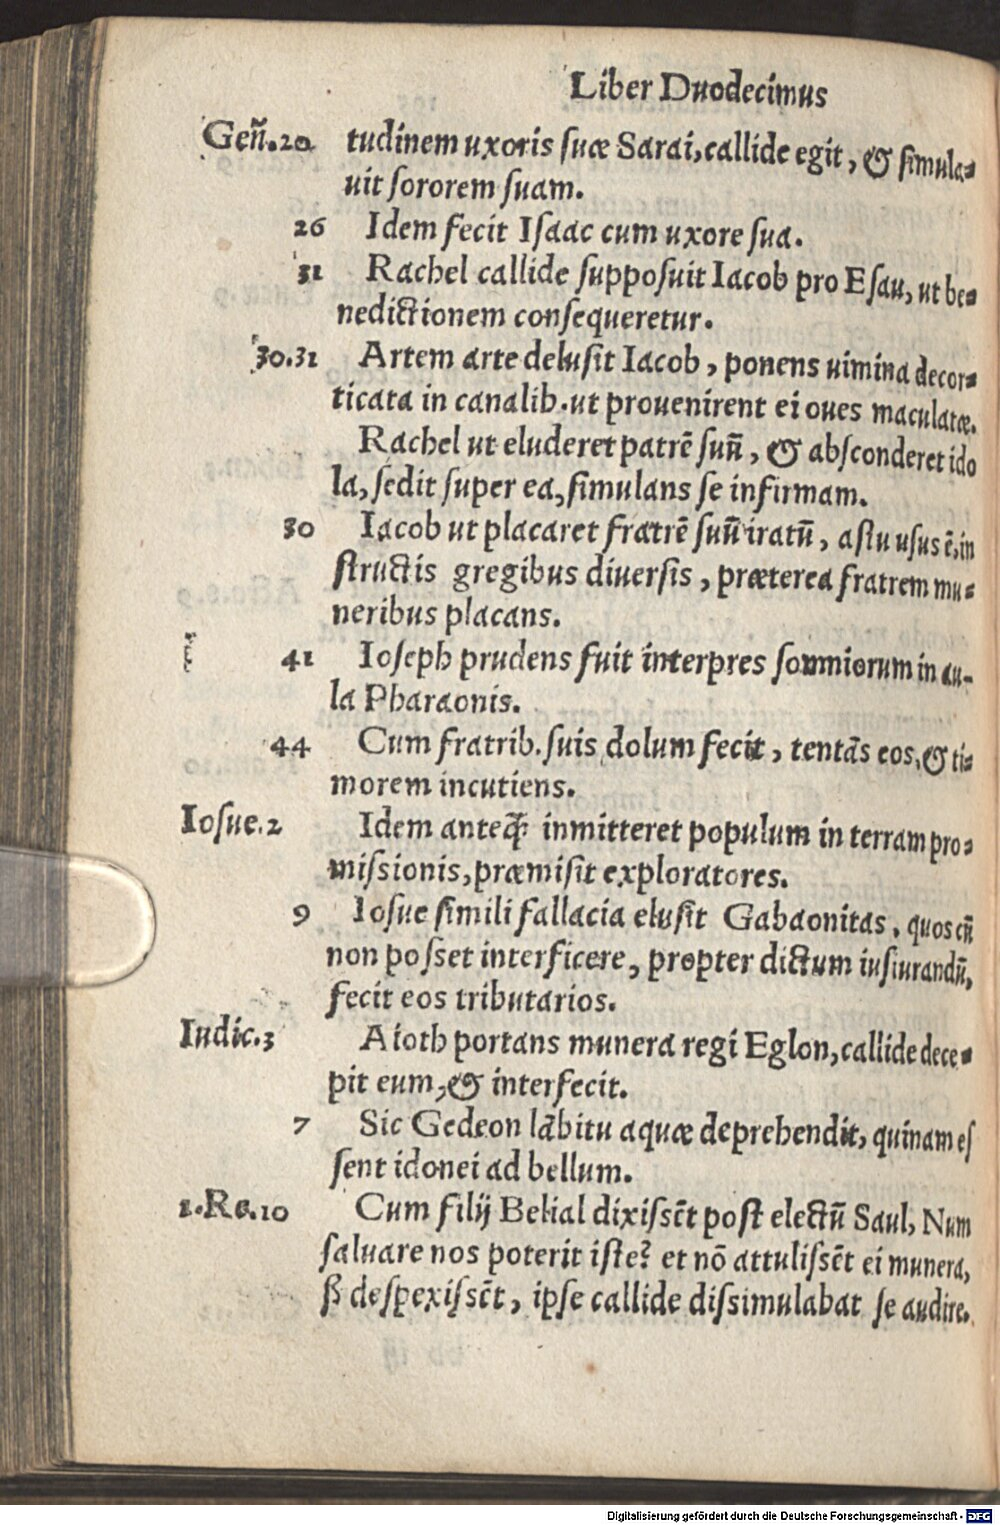 Liber Duodecimus
Geñ.20 tudinem uxoris suæ Sarai, callide egit, & simula-
uit sororem suam.
26 Idem fecit Isaac cum uxore sua.
31 Rachel callide supposuit Iacob pro Esau, ut be-
nedictionem consequeretur.
30.31 Artem arte delusit Iacob, ponens uimina decor-
ticata in canalib. ut prouenirent ei oues maculatæ.
Rachel ut eluderet patrē suū, & absconderet ido
la, sedit super ea, simulans se infirmam.
30 Iacob ut placaret fratrē suū iratū, astu usus ē, in
structis gregibus diuersis, præterea fratrem mu-
neribus placans.
41 Ioseph prudens fuit interpres somniorum in au-
la Pharaonis.
44 Cum fratrib. suis dolum fecit, tentãs eos, & ti-
morem incutiens.
Iosue.2 Idem anteq̃ inmitteret populum in terram pro-
missionis, præmisit exploratores.
9 Iosue simili fallacia elusit Gabaonitas, quos cū
non posset interficere, propter dictum iusiurandū,
fecit eos tributarios.
Iudic.3 Aioth portans munera regi Eglon, callide dece-
pit eum, & interfecit.
7 Sic Gedeon lãbitu aquæ deprehendit, quinam es
sent idonei ad bellum.
1.Re.10 Cum filij Belial dixissēt post electū Saul, Num
saluare nos poterit iste? et nō attulissēt ei munera,
ß despexissēt, ipse callide dissimulabat se audire.
Digitalisierung gefördert durch die Deutsche Forschungsgemeinschaft - DFG